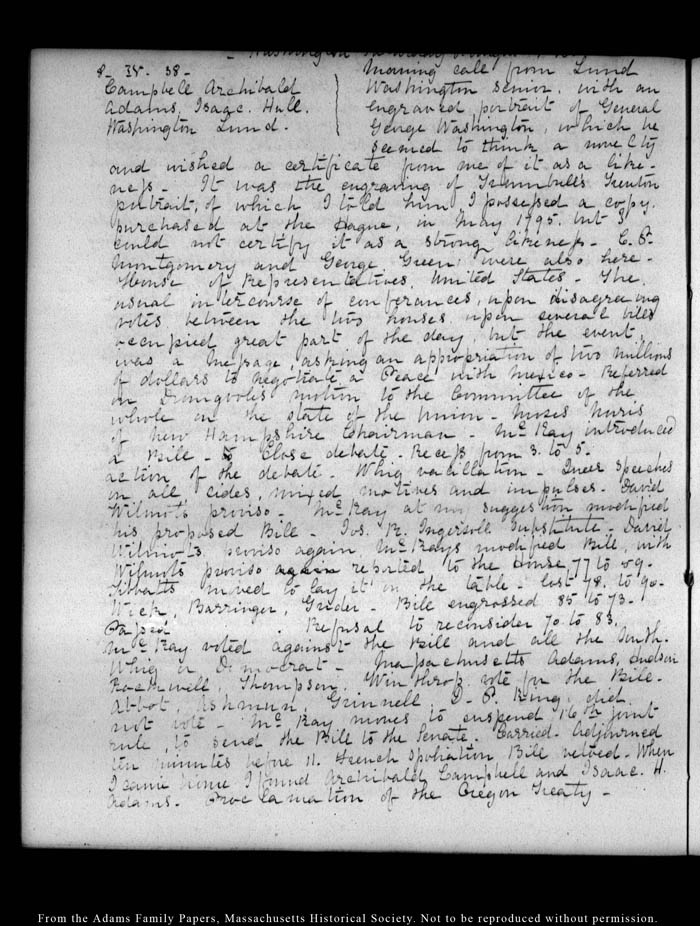 8. IV. 38.
Campbell Archibald
Adams, Isaac. Hull.
Washington Lund.
Morning call from Lund
Washington senior, with an
engraved portrait of General
George Washington, which he
seemed to think a novelty
and wished a certificate from me of it as a like-
ness. It was the engraving of Trumbull's Trenton
portrait, of which I told him I possessed a copy.
purchased at the Hague, in May 1795. but I
could not certify it as a strong likeness - C. P.
Montgomery and George Green, were also here -
House of Representatives, United States - The
usual intercourse of conferances, upon disagreeing
votes between the two houses, upon several bills
occupied great part of the day, but the event,
was a message, asking an appropriation of two millions
of dollars to negotiate a Peace with Mexico - Referred
on Dromgoole's motion to the Committee of the
whole on the state of the Union - Moses Norris
of New Hampshire Chairman - McKay introduced
a Bill - to Close debate - Recess from 3. to 5.
action of the debate - Whig vacillation - Queer speeches
on all sides, mixed motives and impulses. David
Wilmot's proviso - McKay at my suggestion modified
his proposed Bill - Jos. R. Ingersoll substitute - David
Wilmot's proviso again, McKays modified Bill, with
Wilmots proviso again reported to the House 77 to 59 -
Tibbatts moved to lay it on the table - lost 78. to 90 -
Wick, Barringer, Grider - Bill engrossed 85 to 73 -
Passed . Refusal to reconsider 70 to 83.
McKay voted against the Bill and all the South.
Whig or Democrat - Massachusetts Adams, Hudson
Rockwell, Thompson, Winthrop vote for the Bill -
Abbot, Ashmun, Grinnell, D. P. King, did
not vote - McKay moves to suspend 16th joint
rule, to send the Bill to the Senate. Carried. Adjourned
ten minutes before 11. French Spoliation Bill vetoed - When
I came home I found Archibald Campbell and Isaac. H.
Adams. Proclamation of the Oregon Treaty -
From the Adams Family Papers, Massachusetts Historical Society. Not to be reproduced without permission.